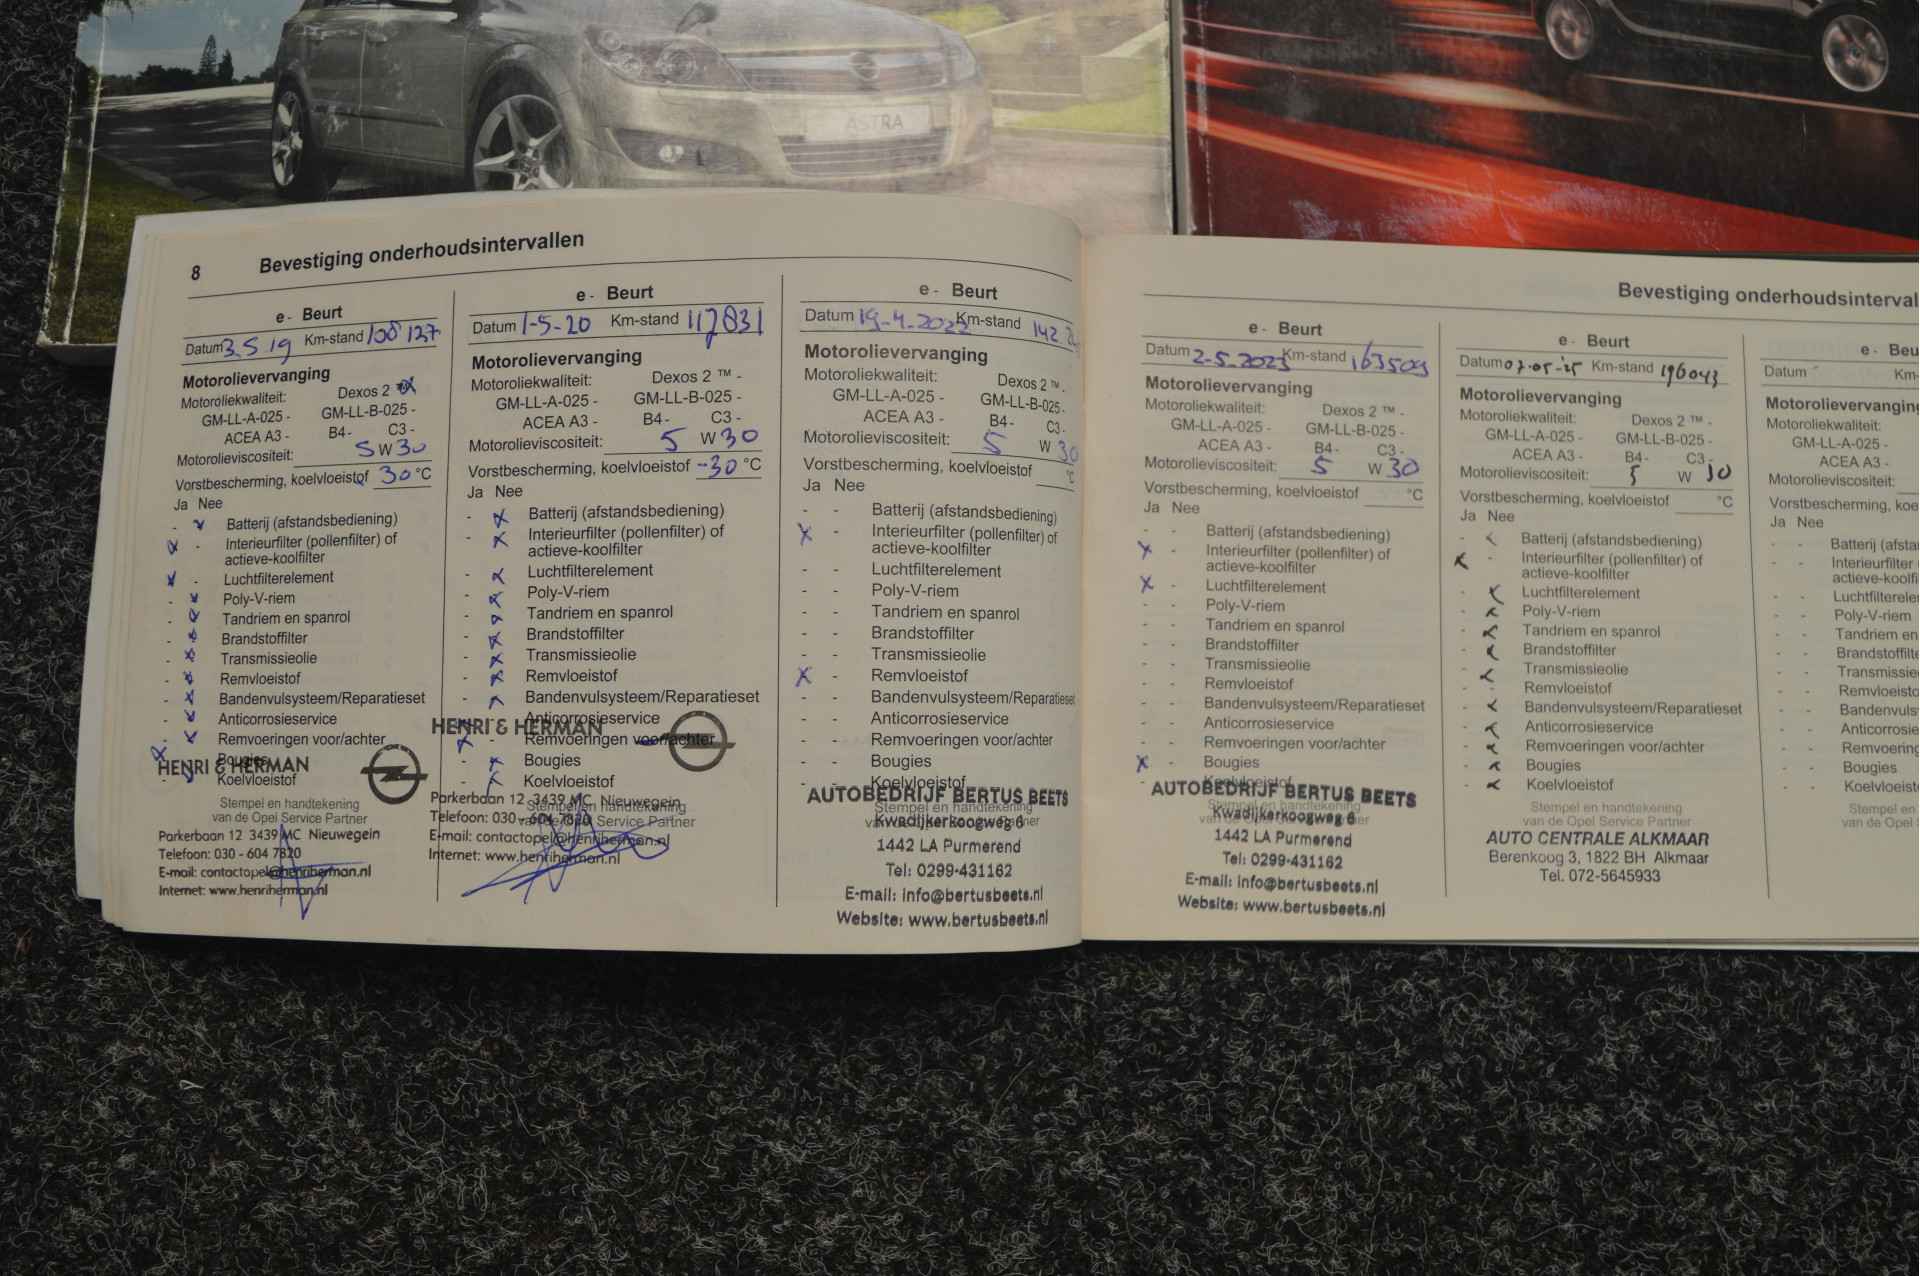 ASTRA
8 Bevestiging onderhoudsintervallen
e - Beurt
Datum 3.5.19 Km-stand 108127
Motorolievervanging
Motoroliekwaliteit: Dexos 2 ™
GM-LL-A-025 - GM-LL-B-025 -
ACEA A3 - B4 - C3 -
Motorolieviscositeit: 5 W 30
Vorstbescherming, koelvloeistof 30 °C
Ja Nee
- x Batterij (afstandsbediening)
x - Interieurfilter (pollenfilter) of
actieve-koolfilter
x - Luchtfilterelement
- x Poly-V-riem
- x Tandriem en spanrol
- x Brandstoffilter
- x Transmissieolie
- x Remvloeistof
- x Bandenvulsysteem/Reparatieset
- x Anticorrosieservice
- x Remvoeringen voor/achter
x Bougies
- x Koelvloeistof
HENRI & HERMAN
Stempel en handtekening
van de Opel Service Partner
Parkerbaan 12 3439 MC Nieuwegein
Telefoon: 030 - 604 7820
E-mail: contactopel@henriherman.nl
Internet: www.henriherman.nl
e - Beurt
Datum 1-5-20 Km-stand 117831
Motorolievervanging
Motoroliekwaliteit: Dexos 2 ™ -
GM-LL-A-025 - GM-LL-B-025 -
ACEA A3 - B4 - C3 -
Motorolieviscositeit: 5 W 30
Vorstbescherming, koelvloeistof -30 °C
Ja Nee
- x Batterij (afstandsbediening)
- x Interieurfilter (pollenfilter) of
actieve-koolfilter
- x Luchtfilterelement
- x Poly-V-riem
- x Tandriem en spanrol
- x Brandstoffilter
- x Transmissieolie
- x Remvloeistof
- x Bandenvulsysteem/Reparatieset
Anticorrosieservice
x - Remvoeringen voor/achter
- x Bougies
- x Koelvloeistof
HENRI & HERMAN
Stempel en handtekening
van de Opel Service Partner
Parkerbaan 12 3439 MC Nieuwegein
Telefoon: 030 - 604 7820
E-mail: contactopel@henriherman.nl
Internet: www.henriherman.nl
e - Beurt
Datum 19-4-2022 Km-stand 142
Motorolievervanging
Motoroliekwaliteit: Dexos 2 ™ -
GM-LL-A-025 - GM-LL-B-025 -
ACEA A3 - B4 - C3 -
Motorolieviscositeit: 5 W 30
Vorstbescherming, koelvloeistof °C
Ja Nee
- - Batterij (afstandsbediening)
x - Interieurfilter (pollenfilter) of
actieve-koolfilter
- - Luchtfilterelement
- - Poly-V-riem
- - Tandriem en spanrol
- - Brandstoffilter
- - Transmissieolie
x - Remvloeistof
- - Bandenvulsysteem/Reparatieset
- - Anticorrosieservice
- - Remvoeringen voor/achter
- - Bougies
- - Koelvloeistof
AUTOBEDRIJF BERTUS BEETS
Stempel en handtekening
Kwadijkerkoogweg 6
1442 LA Purmerend
Tel: 0299-431162
E-mail: info@bertusbeets.nl
Website: www.bertusbeets.nl
Bevestiging onderhoudsinterval
e - Beurt
Datum 2-5-2023 Km-stand 163509
Motorolievervanging
Motoroliekwaliteit: Dexos 2 ™ -
GM-LL-A-025 - GM-LL-B-025 -
ACEA A3 - B4 - C3 -
Motorolieviscositeit: 5 W 30
Vorstbescherming, koelvloeistof °C
Ja Nee
- - Batterij (afstandsbediening)
x - Interieurfilter (pollenfilter) of
actieve-koolfilter
x - Luchtfilterelement
- - Poly-V-riem
- - Tandriem en spanrol
- - Brandstoffilter
- - Transmissieolie
- - Remvloeistof
- - Bandenvulsysteem/Reparatieset
- - Anticorrosieservice
- - Remvoeringen voor/achter
x - Bougies
- - Koelvloeistof
AUTOBEDRIJF BERTUS BEETS
Stempel en handtekening
Kwadijkerkoogweg 6
1442 LA Purmerend
Tel: 0299-431162
E-mail: info@bertusbeets.nl
Website: www.bertusbeets.nl
e - Beurt
Datum 07-05-'25 Km-stand 196043
Motorolievervanging
Motoroliekwaliteit: Dexos 2 ™ -
GM-LL-A-025 - GM-LL-B-025 -
ACEA A3 - B4 - C3 -
Motorolieviscositeit: 5 W 30
Vorstbescherming, koelvloeistof °C
Ja Nee
- x Batterij (afstandsbediening)
x - Interieurfilter (pollenfilter) of
actieve-koolfilter
- x Luchtfilterelement
- x Poly-V-riem
- x Tandriem en spanrol
- x Brandstoffilter
- x Transmissieolie
- - Remvloeistof
- x Bandenvulsysteem/Reparatieset
- x Anticorrosieservice
- x Remvoeringen voor/achter
- x Bougies
- x Koelvloeistof
Stempel en handtekening
van de Opel Service Partner
AUTO CENTRALE ALKMAAR
Berenkoog 3, 1822 BH Alkmaar
Tel. 072-5645933
e - Beu
Datum Km-
Motorolievervanging
Motoroliekwaliteit:
GM-LL-A-025 -
ACEA A3 -
Motorolieviscositeit:
Vorstbescherming, koe
Ja Nee
- - Batterij (afsta
- - Interieurfilter
actieve-koolfi
- - Luchtfilterele
- - Poly-V-riem
- - Tandriem en
- - Brandstoffilte
- - Transmissie
- - Remvloeisto
- - Bandenvuls
- - Anticorrosie
- - Remvoering
- - Bougies
- - Koelvloeist
Stempel en h
van de Opel S